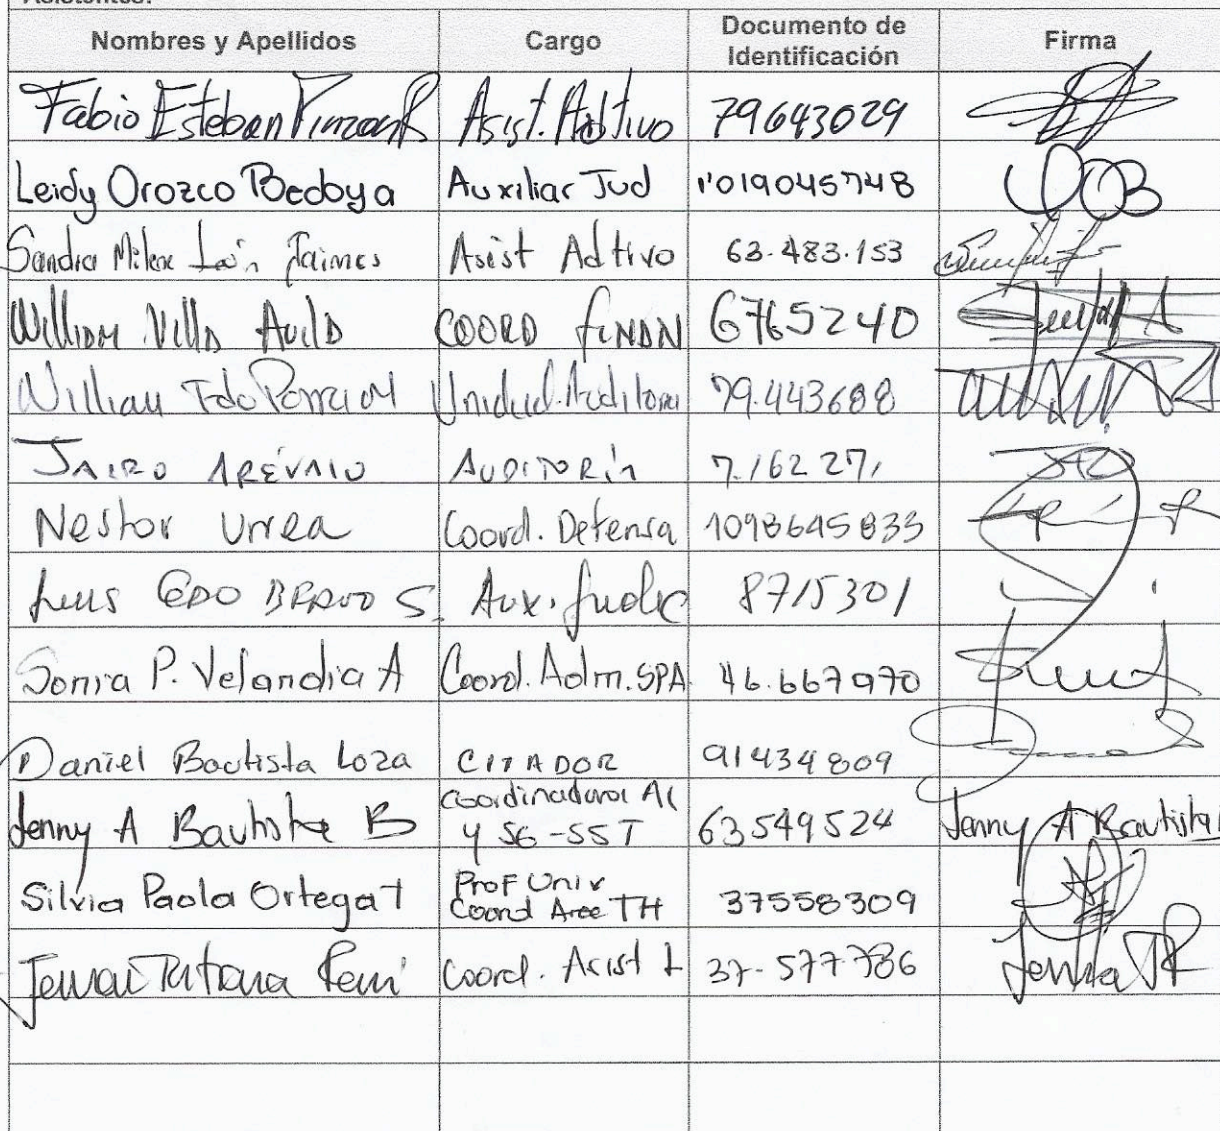 Asistentes:
Nombres y Apellidos Cargo Documento de Identificación Firma
Fabio Esteban Pinzon R Asist. Adtivo 79643029
Leidy Orozco Bedoya Auxiliar Jud 1'019045748 LOB
Sandra Milena León Jaimes Asist Adtivo 63.483.153
William Villa Avila COORD FINAN 6765240
William Fdo Parra M Unidad.Auditoria 79.443688
JAIRO ARÉVALO AUDITORÍA 7.162 271
Nestor Urrea Coord. Defensa 1098645833
Luis EDO BRAVO S. Aux. Judic 8715301
Sonia P. Velandia A Coord. Adm. SPA 46.667970
Daniel Bautista Loza CITADOR 91434809
Jenny A Bautista B Coordinadora AC y SG-SST 63549524 Jenny A Bautista
Silvia Paola Ortega T Prof Univ Coord Area TH 37558309
Tatiana Coord. Asist L 37-577-786